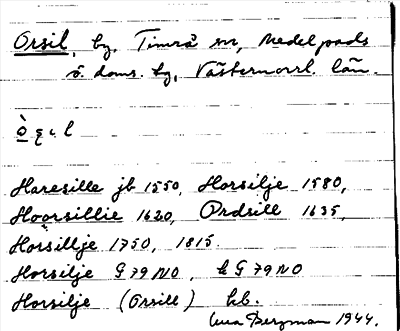 Orsil, by, Timrå sn, Medelpads
ö. doms. bg, Västernorrl. län.
Haresille jb 1550, Horsilje 1580,
Hoorsillie 1620, Ordsill 1635,
Horsillje 1750, 1815.
Horsilje G 79 NO, h G 79 NO
Horsilje (Orsill) hb.
Bergman 1944.